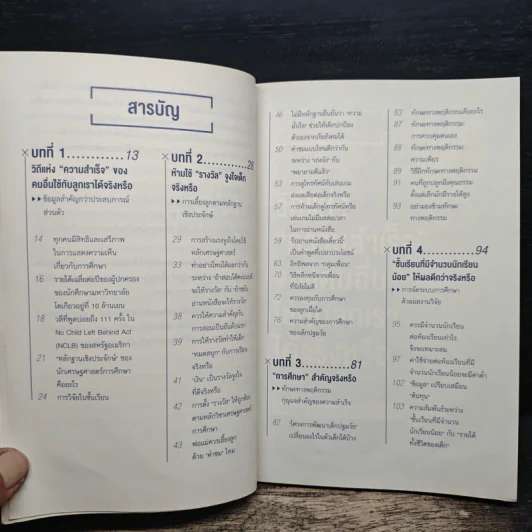 สารบัญ
บทที่ 1............13
วิถีแห่ง “ความสำเร็จ” ของ
คนอื่นใช้กับลูกเราได้จริงหรือ
ข้อมูลสำคัญกว่าประสบการณ์
ส่วนตัว
14 ทุกคนมีสิทธิและเสรีภาพ
ในการแสดงความเห็น
เกี่ยวกับการศึกษา
16 รายได้เฉลี่ยต่อปีของผู้ปกครอง
ของนักศึกษามหาวิทยาลัย
โตเกียวอยู่ที่ 10 ล้านเยน
18 'วลีที่พูดบ่อยถึง 111 ครั้ง ใน
No Child Left Behind Act
(NCLB) ของสหรัฐอเมริกา
21 'หลักฐานเชิงประจักษ์' ของ
นักเศรษฐศาสตร์การศึกษา
คืออะไร
24 การวิจัยในชั้นเรียน
บทที่ 2............28
ห้ามใช้ “รางวัล” จูงใจเด็ก
จริงหรือ
การเลี้ยงลูกตามหลักฐาน
เชิงประจักษ์
29 การสร้างแรงจูงใจโดยใช้
หลักเศรษฐศาสตร์
33 ทำอย่างไหนได้ผลกว่ากัน
38 ควรให้ความสำคัญกับ
39 การให้รางวัลทำให้เด็ก
'หมดสนุก' กับการเรียน
จริงหรือ
41 'เงิน' เป็นรางวัลจูงใจ
ที่ดีจริงหรือ
42 การตั้ง 'รางวัล' ให้ถูกต้อง
ตามหลักวิชาเศรษฐศาสตร์
การศึกษา
43 พ่อแม่ควรเลี้ยงลูก
ด้วย 'คำชม' ไหม
46 ไม่มีหลักฐานยืนยันว่า 'ความ
มั่นใจ' ช่วยให้เด็กปกป้อง
ตัวเองจากภัยสังคมได้
50 คำชมแบบไหนดีกว่ากัน
ระหว่าง 'เก่งจัง' กับ
'พยายามดีแล้ว'
53 การดูโทรทัศน์กับเล่นเกม
ส่งผลเสียต่อเด็กจริงหรือ
57 การห้ามเด็กดูโทรทัศน์หรือ
เล่นเกมไม่มีผลต่อเวลา
ในการอ่านหนังสือ
59 'ไปอ่านหนังสือเดี๋ยวนี้'
เป็นคำพูดที่เปล่าประโยชน์
63 อิทธิพลจาก 'กลุ่มเพื่อน'
70 วิธีหลีกหนีจากเพื่อน
ที่นิสัยไม่ดี
72 ควรลงทุนกับการศึกษา
ของลูกเมื่อใด
76 ความสำคัญของการศึกษา
ของเด็กปฐมวัย
บทที่ 3............81
“การศึกษา” สำคัญจริงหรือ
ทักษะทางพฤติกรรม
กุญแจสำคัญของความสำเร็จ
82 'โครงการพัฒนาเด็กปฐมวัย'
เปลี่ยนอะไรในตัวเด็กได้บ้าง
83 ทักษะทางพฤติกรรมคืออะไร
87 ทักษะทางพฤติกรรม:
การควบคุมตนเอง
88 ทักษะทางพฤติกรรม:
ความเพียร
89 วิธีฝึกทักษะทางพฤติกรรม
91 คนที่ถูกปลูกฝังคุณธรรม
ตั้งแต่เล็กมักมีรายได้สูง
93 อย่ามองข้ามทักษะ
ทางพฤติกรรม
บทที่ 4............94
“ชั้นเรียนที่มีจำนวนนักเรียน
น้อย” ให้ผลดีกว่าจริงหรือ
การจัดระบบการศึกษา
ด้วยผลงานวิจัย
95 ควรมีจำนวนนักเรียน
ต่อห้องเรียนเท่าไร
จึงจะเหมาะสม
97 ค่าใช้จ่ายต่อห้องเรียนที่มี
จำนวนนักเรียนน้อยจะมีค่าต่ำ
102 'ข้อมูล' เปรียบเสมือน
'ต้นทุน'
103 ความสัมพันธ์ระหว่าง
'ชั้นเรียนที่มีจำนวน
นักเรียนน้อย' กับ 'รายได้
ทั้งชีวิตของเด็ก'